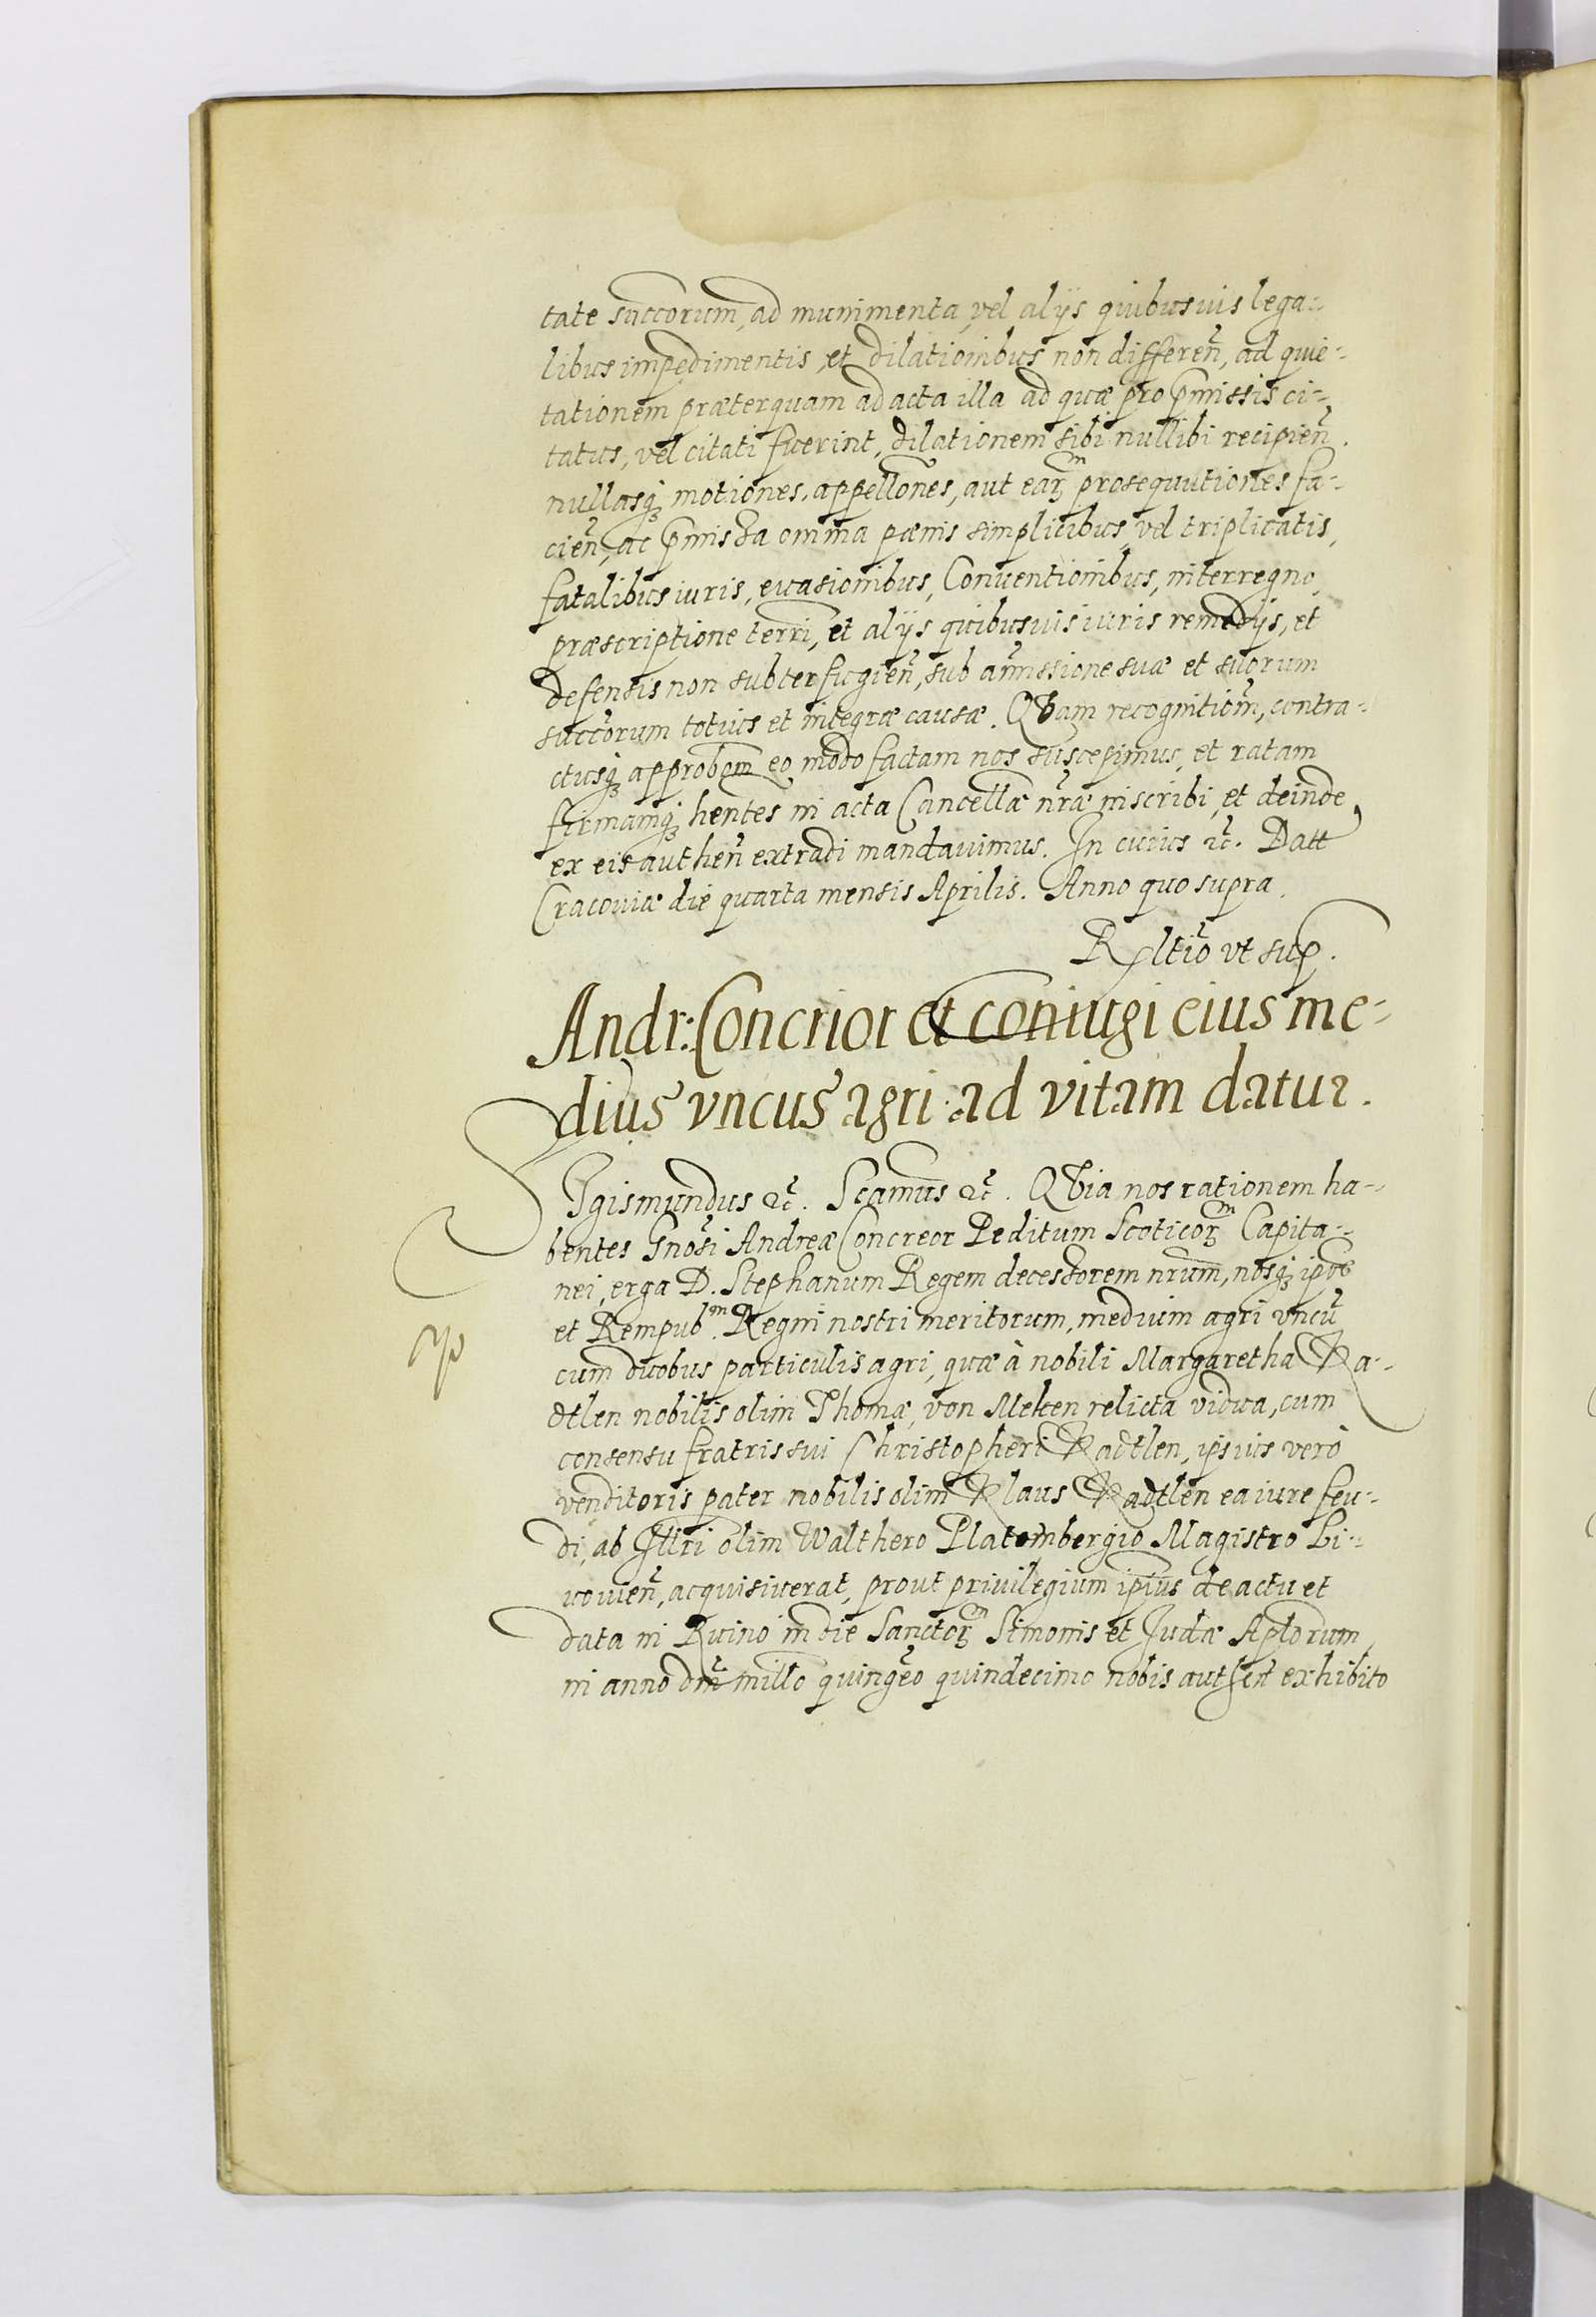 tate succorum, ad munimenta, vel alijs quibusuis lega-
libus impedimentis, et dilationibus non differeñ, ad quie-
tationem præterquam ad acta illa ad quæ pro pmissis ci-
tatus, vel citati fuerint, dilationem sibi nullibi recipieñ.
nullasq; motiones, appellones, aut earᵐ prosequutiones fa-
cieñ, ac pmissa omnia pænis simplicibus, vel triplicatis,
fatalibus iuris, euasionibus, Conuentionibus, interregno,
præscriptione terri, et alijs quibusuis iuris remedijs, et
defensis non subterfugieñ, sub amissione suæ et suorum
succorum totius et integræ causæ. Quam recognitiom, contra-
ctusq; approbom eo modo factam nos suscepimus, et ratam
firmamq; hentes in acta Cancellæ nræ inscribi, et deinde
ex eis autheñ extradi mandauimus. In cuius etc. Datt
Cracouiæ die quarta mensis Aprilis. Anno quo supra.
Rltio vt sup.
Andr: Concrior et coniugi eius me-
dius vncus agri ad vitam datur.
SIgismundus etc. Scamus etc. Quia nos rationem ha-
bentes Gnosi Andreæ Concreor Peditum Scoticorᵐ Capita-
nei, erga D. Stephanum Regem decessorem nrum, nosq; ipos
et Rempubᵐ. Regni nostri meritorum, medium agri vncũ
cum duobus particulis agri, quæ à nobili Margaretha Ra-
dtlen nobilis olim Thomæ, von Meken relicta vidua, cum
consensu fratris sui Christopheri Radtlen, ipsius verò
venditoris pater nobilis olim Klaus Radtlen ea iure feu-
di, ab Illri olim Walthero Platembergio Magistro Li-
uonieñ, acquisiuerat, prout priuilegium ipius de actu et
data in Ruino in die Sanctorᵐ Simonis et Judæ Aplorum,
in anno dni millo quingeo quindecimo nobis autheñ exhibito